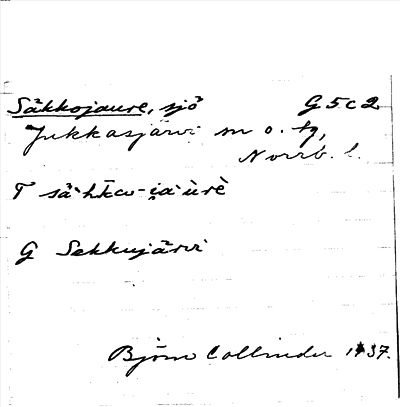 Säkkojaure, sjö G5c2
Jukkasjärvi sn o. tg,
Norrb. l.
T
G Sekkujärvi
Björn Collinder 1937.